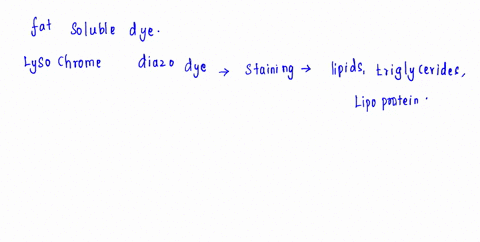 fat soluble dye.
Lyso chrome diazo dye → staining → lipids, triglycerides,
Lipo protein.